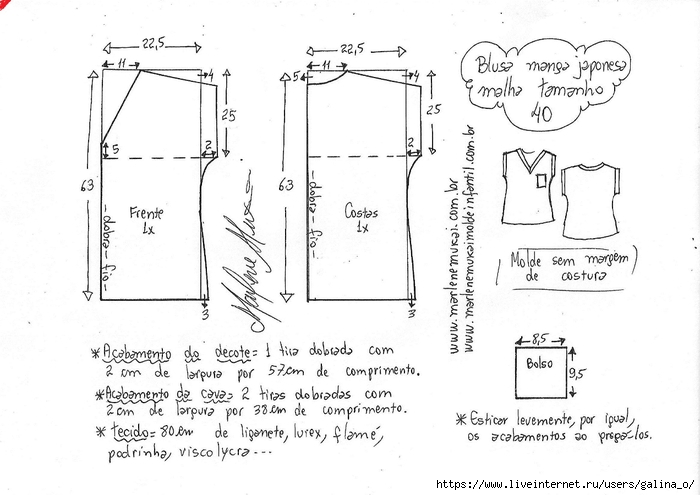 22,5
11
4
25
5
2
63
Frente
1x
-dobra-fio-
3
22,5
11
5
4
25
2
63
Costas
1x
-dobra-fio-
3
Blusa manga japonesa
malha tamanho
40
www.marlenemukai.com.br
www.marlenemukaimoldeinfantil.com.br
Molde sem margem
de costura
8,5
Bolso
9,5
*Acabamento do decote= 1 tira dobrada com
2 cm de largura por 57cm de comprimento.
*Acabamento da cava= 2 tiras dobradas com
2cm de largura por 38cm de comprimento.
*tecido= 80cm de liganete, lurex, flamê,
podrinha, viscolycra...
*Esticar levemente, por igual,
os acabamentos ao pregá-los.
https://www.liveinternet.ru/users/galina_o/